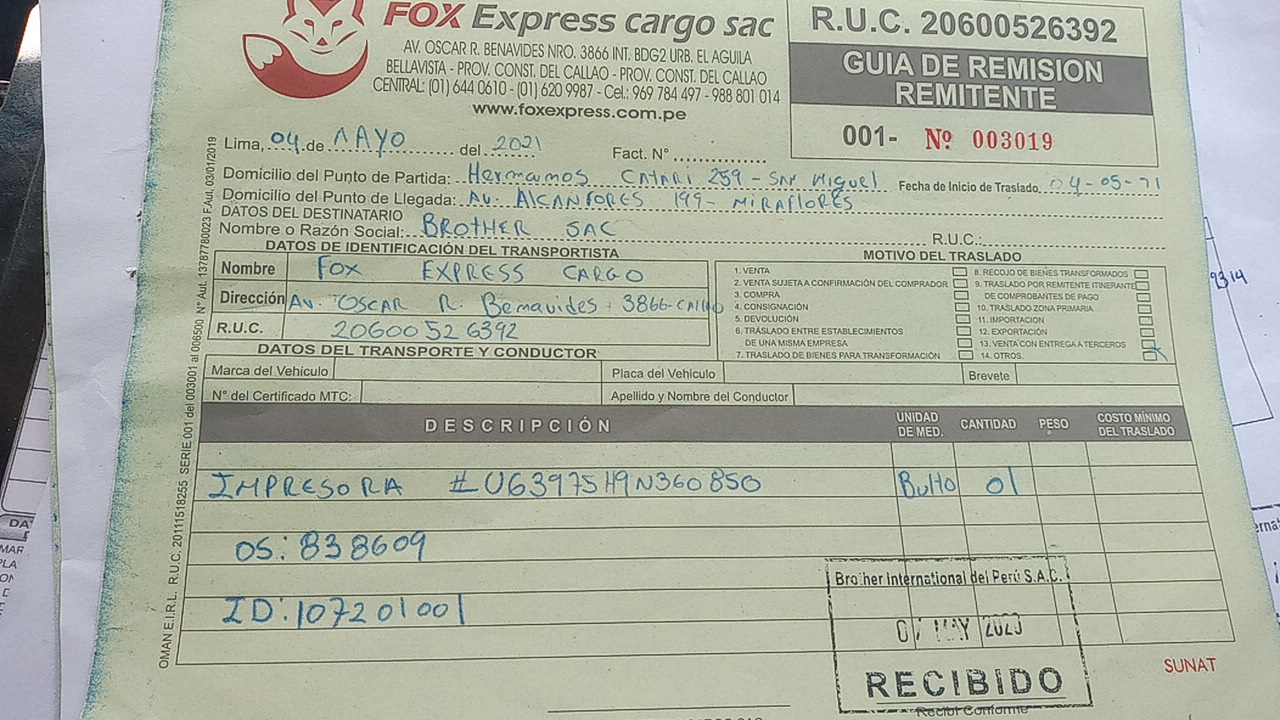 FOX Express cargo sac
AV. OSCAR R. BENAVIDES NRO. 3866 INT. BDG2 URB. EL AGUILA
BELLAVISTA - PROV. CONST. DEL CALLAO - PROV. CONST. DEL CALLAO
CENTRAL: (01) 644 0610 - (01) 620 9987 - Cel.: 969 784 497 - 988 801 014
www.foxexpress.com.pe
R.U.C. 20600526392
GUIA DE REMISION
REMITENTE
001- Nº 003019
Lima, 04 de MAYO del 2021 Fact. N°
Domicilio del Punto de Partida: Hermamos CATARI 259 - SAN Miguel Fecha de Inicio de Traslado 04-05-21
Domicilio del Punto de Llegada: AV. ALCANFORES 199 - MIRAFLORES
DATOS DEL DESTINATARIO
Nombre o Razón Social: BROTHER SAC R.U.C.:
DATOS DE IDENTIFICACIÓN DEL TRANSPORTISTA
Nombre FOX EXPRESS CARGO
Dirección AV. OSCAR R. Bemavides . 3866-CALLAO
R.U.C. 20600526392
MOTIVO DEL TRASLADO
1. VENTA
2. VENTA SUJETA A CONFIRMACIÓN DEL COMPRADOR
3. COMPRA
4. CONSIGNACIÓN
5. DEVOLUCIÓN
6. TRASLADO ENTRE ESTABLECIMIENTOS
DE UNA MISMA EMPRESA
7. TRASLADO DE BIENES PARA TRANSFORMACIÓN
8. RECOJO DE BIENES TRANSFORMADOS
9. TRASLADO POR REMITENTE ITINERANTE
DE COMPROBANTES DE PAGO
10. TRASLADO ZONA PRIMARIA
11. IMPORTACION
12. EXPORTACIÓN
13. VENTA CON ENTREGA A TERCEROS
14. OTROS.
DATOS DEL TRANSPORTE Y CONDUCTOR
Marca del Vehiculo Placa del Vehiculo Brevete
N° del Certificado MTC: Apellido y Nombre del Conductor
DESCRIPCIÓN UNIDAD DE MED. CANTIDAD PESO COSTO MÍNIMO DEL TRASLADO
IMPRESORA #U63975H9N360850 Bulto 01
OS: 838609
ID: 107201001
Brother International del Perú S.A.C.
MAY
RECIBIDO
Recibí Conforme
SUNAT
OMAN E.I.R.L. R.U.C. 20111518255 SERIE 001 del 003001 al 006500 N° Aut. 13787780023 F.Aut. 03/01/2019
9314